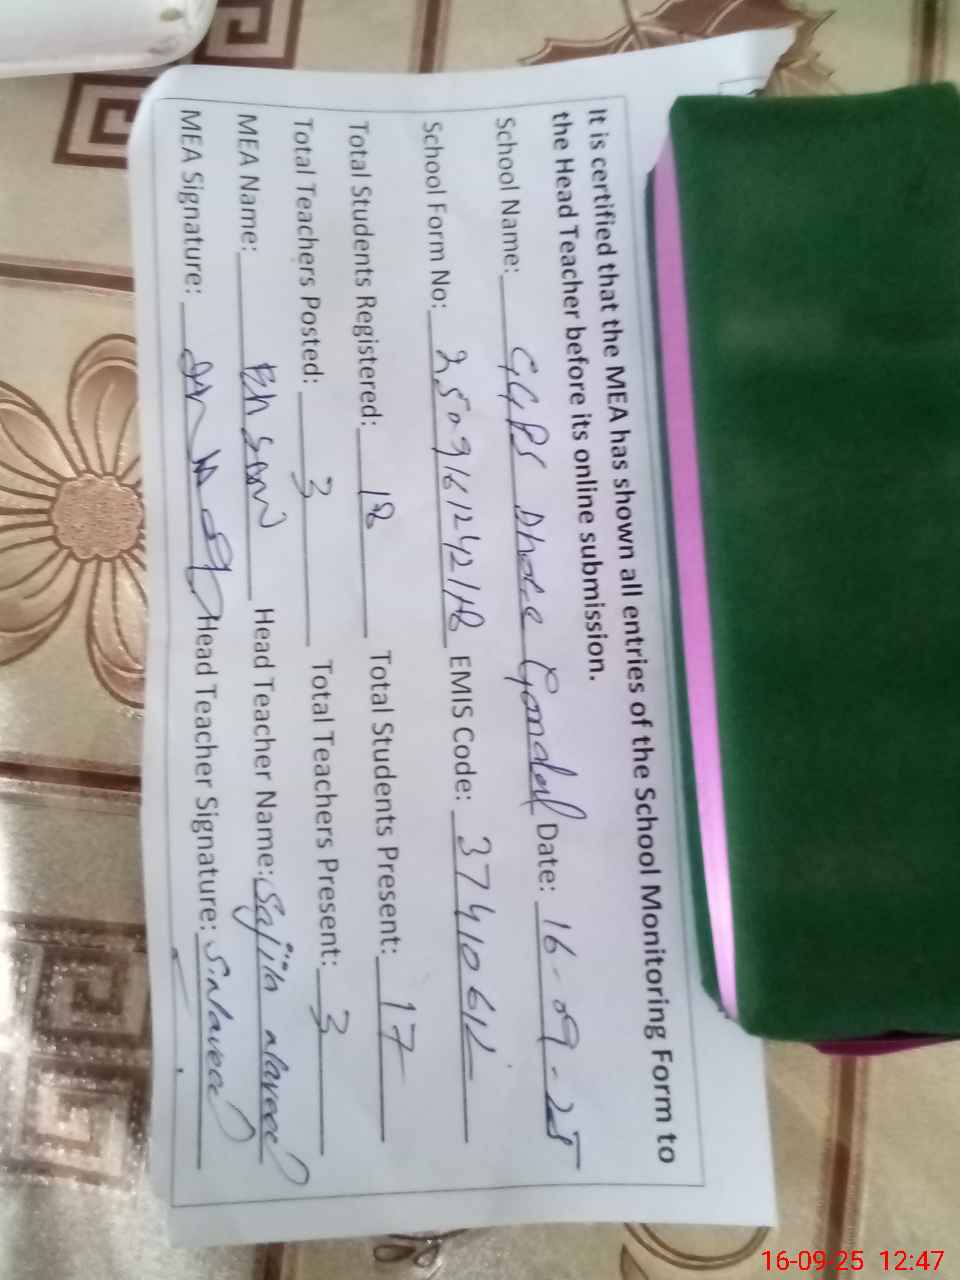 It is certified that the MEA has shown all entries of the School Monitoring Form to
the Head Teacher before its online submission.
School Name: GGPS Dhoke Gondal Date: 16-09-25
School Form No: EMIS Code:
Total Students Registered: 18 Total Students Present: 17
Total Teachers Posted: 3 Total Teachers Present: 3
MEA Name: Head Teacher Name: Sajila
MEA Signature: Head Teacher Signature:
16-09-25 12:47